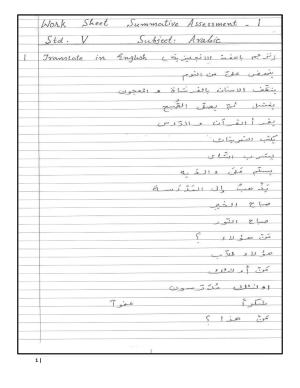 Work Sheet Summative Assessment - 1
Std. V Subject: Arabic
1 Translate in English ترجم باللغة الانجليزية
ينهض من النوم
ينظف الاسنان بالفرشاة و المعجون
يغتسل ثم يصلي الصبح
يقرأ القرآن و الدرس
يكتب التمرينات
يشرب الشاي
يسلم على والديه
يذهب إلى المدرسة
صباح الخير
صباح النور
من هؤلاء ؟
هؤلاء طلاب
من أولئك
اولئك مدرسون
شكراً عفواً
من هذا ؟
1 |